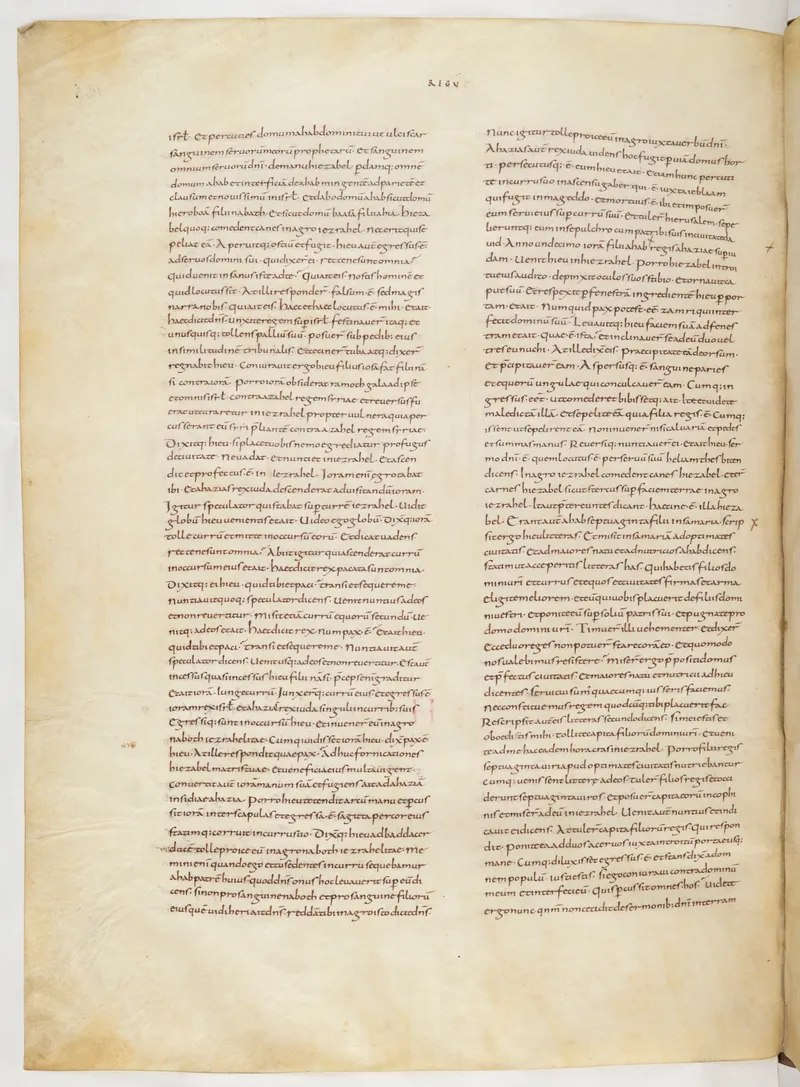 REGV
isrl̄. Et percuties domum ahab domini tui ut ulciscar
sanguinem seruorum meorū prophetarū. Et sanguinem
omnium seruorū dn̄i. de manu hiezabel. pdamq; omnē
domum ahab et interficiā de ahab mingentē ad parietē et
clausum et nouissimū in isrl̄. Et dabo domū ahab sicut domū
hieroboā filii nabath. Et sicut domū baasa filii ahia. Hieza
bel quoq; comedent canes in agro iezrahel. nec erit qui se
peliat eā. Aperuitq; ostiū et fugit. hieu aut̄ egressus ē
ad seruos domini sui. qui dixer̄ ei. recte ne sunt omnia.
quid uenit insanus iste ad te. Qui ait eis. Nostis hominē et
quid locutus sit. At illi responder̄. falsum ē. sed magis
narra nobis. qui ait eis. Haec et haec locutus ē mihi. Et ait
haec dicit dn̄s. unxi te regem sup isrl̄. festinauer̄ itaq; et
unusquisq; tollens palliū suū. posuer̄ sub pedib; eius
in similitudinē tribunalis. Et ceciner̄ tuba atq; dixer̄
regnabit hieu. Coniurauit ergo hieu filius iosafat filii nā
si contra iorā. Porro iorā obsiderat ramoth galaad ipse
et omnis isrl̄. contra azahel regem syriae et reuersus fu
erat ut curaretur in iezrahel propter uulnera quia per
cusserant eū syri pliantē contra azahel regem syriae.
Dixitq; hieu. si placet uobis nemo egrediatur profugus
de ciuitate. Ne uadat et nuntiet in iezrahel. Et ascen
dit et profectus ē in iezrahel. Ioram enī egrotabat
ibi. Et ahazias rex iuda descenderat ad uisitandū ioram.
Igitur speculator qui stabat sup turrē iezrahel. Uidit
globū hieu uenientis et ait. Uideo ego globū. Dixitq; iorā
tolle currū et mitte in occursū eorū. Et dicat uadens
recte ne sunt omnia. Abiit igitur qui ascenderat currū
in occursum eius et ait. haec dicit rex pacata sunt omnia.
Dixitq; ei hieu. quid tibi et paci. transi et sequere me.
Nuntiauit quoq; speculator dicens. Uenit nuntius ad eos
et non reuertitur. Misit etiā currū equorū secundū. Ue
nitq; ad eos et ait. Haec dicit rex. Num pax ē. Et ait hieu.
quid tibi et paci. transi et sequere me. Nuntiauit aut̄
speculator dicens. Uenit usq; ad eos et non reuertitur. Est aut̄
incessus quasi incessus hieu filii nāsi. pceps enī graditur
Et ait iorā. Iunge currū. Iunxerq; currū eius et egressus ē
ioram rex isrl̄. et ahazias rex iuda singuli in curribus suis
Egressiq; sunt in occursū hieu. Et inuener̄ eū in agro
naboth iezrahelitae. Cumq; uidisset iorā hieu. dix̄ pax ē
hieu. At ille respondit quae pax. Adhuc fornicationes
hiezabel matris tuae. et ueneficia eius multa uigent.
Conuertit aut̄ iorā manum suā et fugiens ait ad ahaziā
insidiae ahazia. Porro hieu tetendit arcū manu et pcus
sit iorā inter scapulas et egressa ē sagitta per cor eius
statimq; corruit in curru suo. Dixitq; hieu ad baddacer
ducē. tolle proice eū in agro naboth iezrahelitae. Me
mini enī quando ego et tu sedentes in curru sequebamur
ahab patrē huius. quod dn̄s onus hoc leuauerit sup eū di
cens. si non pro sanguine naboth et pro sanguine filiorū
eius quē uidi heri ait dn̄s. reddā tibi in agro isto dicit dn̄s.
Nunc igitur tolle proice eū in agro iuxta uerbū dn̄i.
Ahazias aut̄ rex iuda uidens hoc fugit p uiā domus hor
ti. persecutusq; ē eum hieu et ait. Etiam hunc percuti
te in curru suo in ascensu gaber qui ē iuxta ieblaam
qui fugit in mageddo. et mortuus ē ibi et imposuer̄
eum serui eius sup currū suū. Et tuler̄ hierusalem. sepe
lieruntq; eum in sepulchro cum patrib; suis in ciuitate da
uid. Anno undecimo iorā filii ahab regis ahazias sup iu
dam. Uenit hieu in hiezrahel. Porro hiezabel introi
tu eius audito. depinxit oculos suos stibio. Et ornauit ca
put suū. Et respexit p fenestrā ingredientē hieu p por
tam. et ait. Numquid pax potest eē zamri qui inter
fecit dominū suū. Leuauitq; hieu faciem suā ad fenes
tram et ait. quae ē ista. et inclinauer̄ se ad eū duo uel
tres eunuchi. At ille dix̄ eis. praecipitate eā deorsum.
Et pcipitauer̄ eam. Aspersusq; ē sanguine paries
et equorū ungulae qui conculcauer̄ eam. Cumq; in
gressus eēt. ut comederet bibissetq; ait. Ite et uidete
maledictā illā. Et sepelite eā quia filia regis ē. Cumq;
issent ut sepelirent eā. Non inuener̄ nisi caluariā et pedes
et summas manus. Reuersiq; nuntiauer̄ ei. Et ait hieu. ser
mo dn̄i ē quem locutus ē per seruū suū heliam thesbiten
dicens. In agro iezrahel comedent canes hiezabel. et er̄
carnes hiezabel sicut stercus sup faciem terrae in agro
iezrahel. Ita ut pter euntes dicant. haecine ē illa hieza
bel. Erant aut̄ ahab septuaginta filii in samaria. scrip
sit ergo hieu litteras. Et misit in samariā ad optimates
ciuitatis. Et ad maiores natu et ad nutricios ahab dicens.
statim ut acceperitis litteras has. Qui habetis filios do
mini urī et currus et equos et ciuitates firmas et arma.
eligite meliorem. et eū qui uobis placuerit de filiis domi
ni uestri. Et ponite eū sup soliū patris sui. et pugnate pro
domo domini urī. Timuer̄ illi uehementer et dixer̄
Ecce duo reges non potuer̄ stare corā eo. Et quomodo
nos ualebimus resistere. Miser̄ ergo p̄positi domus
et p̄fectus ciuitatis. Et maiores natu et nutricii ad hieu
dicentes. serui tui sumus quaecumq; iusseris faciemus.
Nec constituemus regem quodcūq; tibi placuerit fac.
Rescripsit aut̄ eis litteras secundo dicens. si mei estis et
oboeditis mihi. tollite capita filiorū domini urī. Et ueni
te ad me hac eadem hora cras in iezrahel. Porro filii regis
septuaginta uiri apud optimates ciuitatis nutriebantur
Cumq; uenissent litterae ad eos. tuler̄ filios regis et occi
derunt septuaginta uiros. Et posuer̄ capita eorū in cophi
nis et miser̄ ad eū in iezrahel. Uenit aut̄ nuntius et indi
cauit ei dicens. Attuler̄ capita filiorū regis. qui respon
dit. ponite ad duos aceruos iuxta introitū portae usq;
mane. Cumq; diluxisset egressus ē. et stans dix̄ ad om
nem populū. iusti estis. si ego coniuraui contra dominū
meum et interfeci eū. Quis pcussit omnes hos. Uidete
ergo nunc qn̄m non cecidit de sermonibus dn̄i in terram